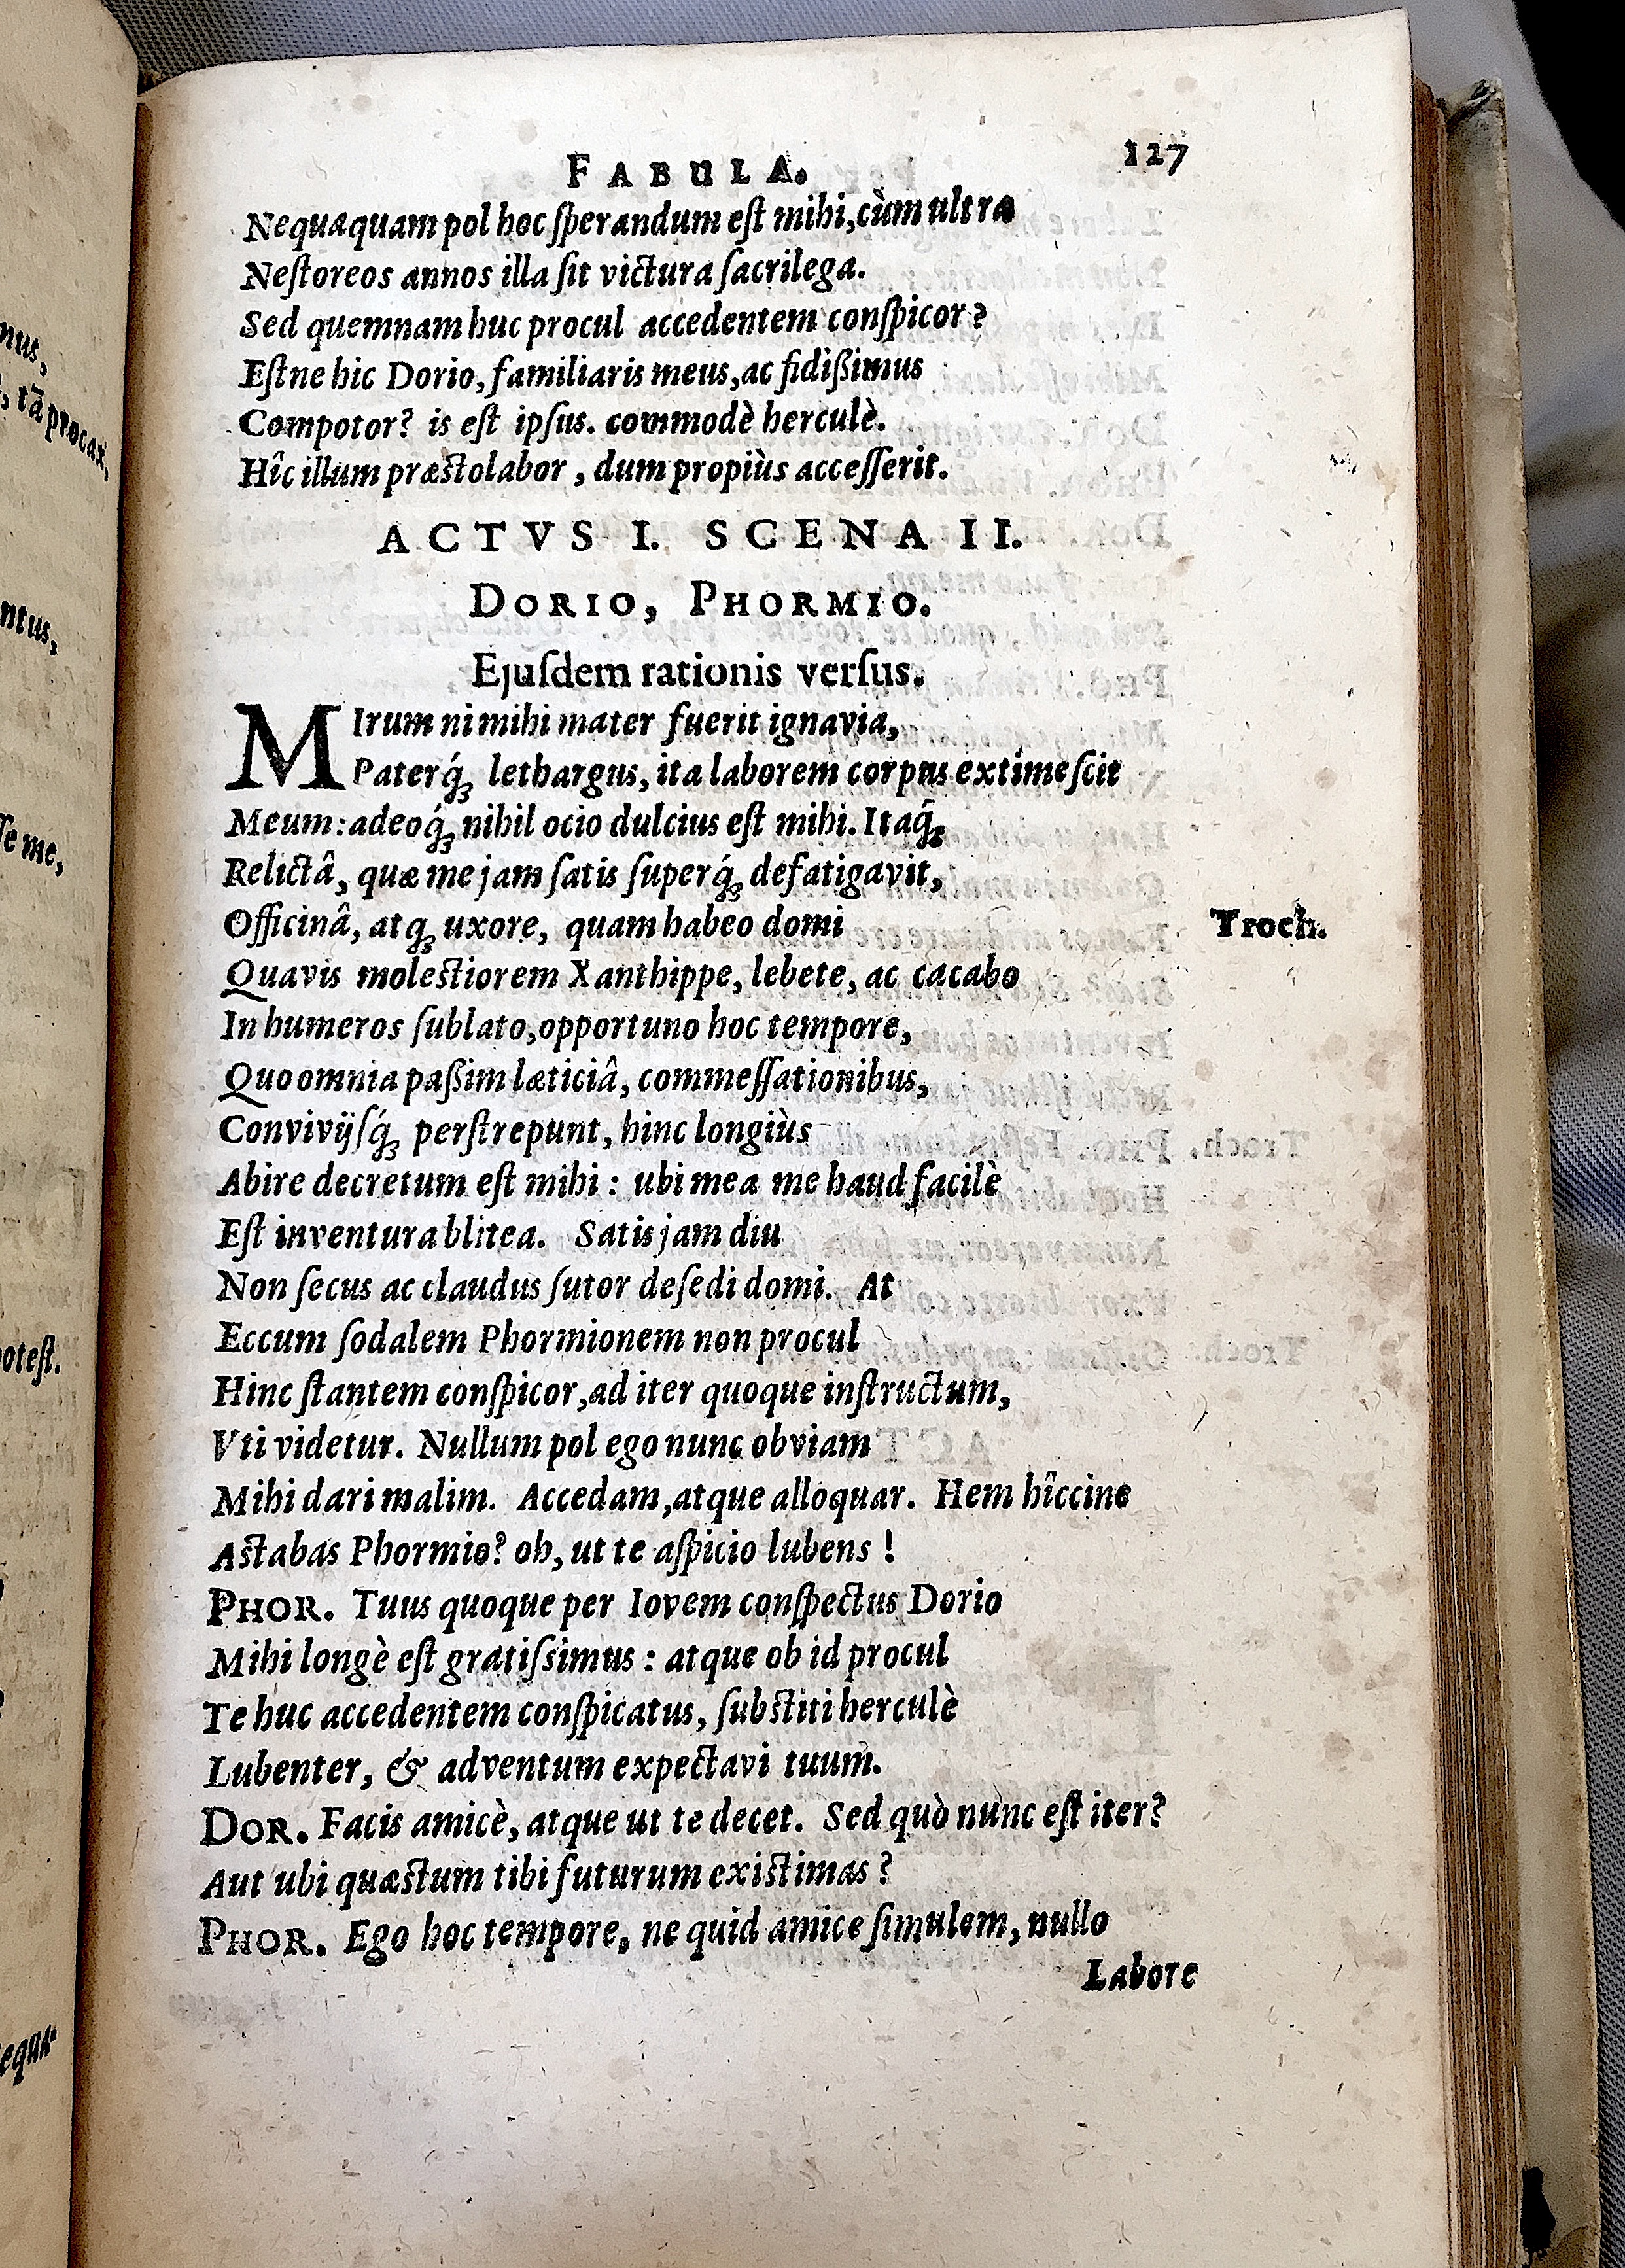 FABULA. 127
Nequaquam pol hoc ſperandum eſt mihi, cùm ultra
Neſtoreos annos illa ſit victura ſacrilega.
Sed quemnam huc procul accedentem conſpicor?
Eſtne hic Dorio, familiaris meus, ac fidißimus
Compotor? is eſt ipſus. commodè herculè.
Hîc illum præſtolabor, dum propiùs acceſſerit.
ACTVS I. SCENA II.
DORIO, PHORMIO.
Ejuſdem rationis verſus.
MIrum ni mihi mater fuerit ignavia,
Paterq́; lethargus, ita laborem corpus extimeſcit
Meum: adeoq́; nihil ocio dulcius eſt mihi. Itaq́;
Relictâ, quæ me jam ſatis ſuperq́; defatigavit,
Officinâ, atq; uxore, quam habeo domi Troch.
Quavis moleſtiorem Xanthippe, lebete, ac cacabo
In humeros ſublato, opportuno hoc tempore,
Quo omnia paßim læticiâ, commeſſationibus,
Convivijſq́; perſtrepunt, hinc longiùs
Abire decretum eſt mihi: ubi mea me haud facilè
Eſt inventura blitea. Satis jam diu
Non ſecus ac claudus ſutor deſedi domi. At
Eccum ſodalem Phormionem non procul
Hinc ſtantem conſpicor, ad iter quoque inſtructum,
Vti videtur. Nullum pol ego nunc obviam
Mihi dari malim. Accedam, atque alloquar. Hem hîccine
Aſtabas Phormio? oh, ut te aſpicio lubens!
PHOR. Tuus quoque per Iovem conſpectus Dorio
Mihi longè eſt gratiſsimus: atque ob id procul
Te huc accedentem conſpicatus, ſubſtiti herculè
Lubenter, & adventum expectavi tuum.
DOR. Facis amicè, atque ut te decet. Sed quò nunc eſt iter?
Aut ubi quæſtum tibi futurum exiſtimas?
PHOR. Ego hoc tempore, ne quid amice ſimulem, nullo
Labore
nus,
tā procax,
ntus,
ſe me,
poteſt.
equa-